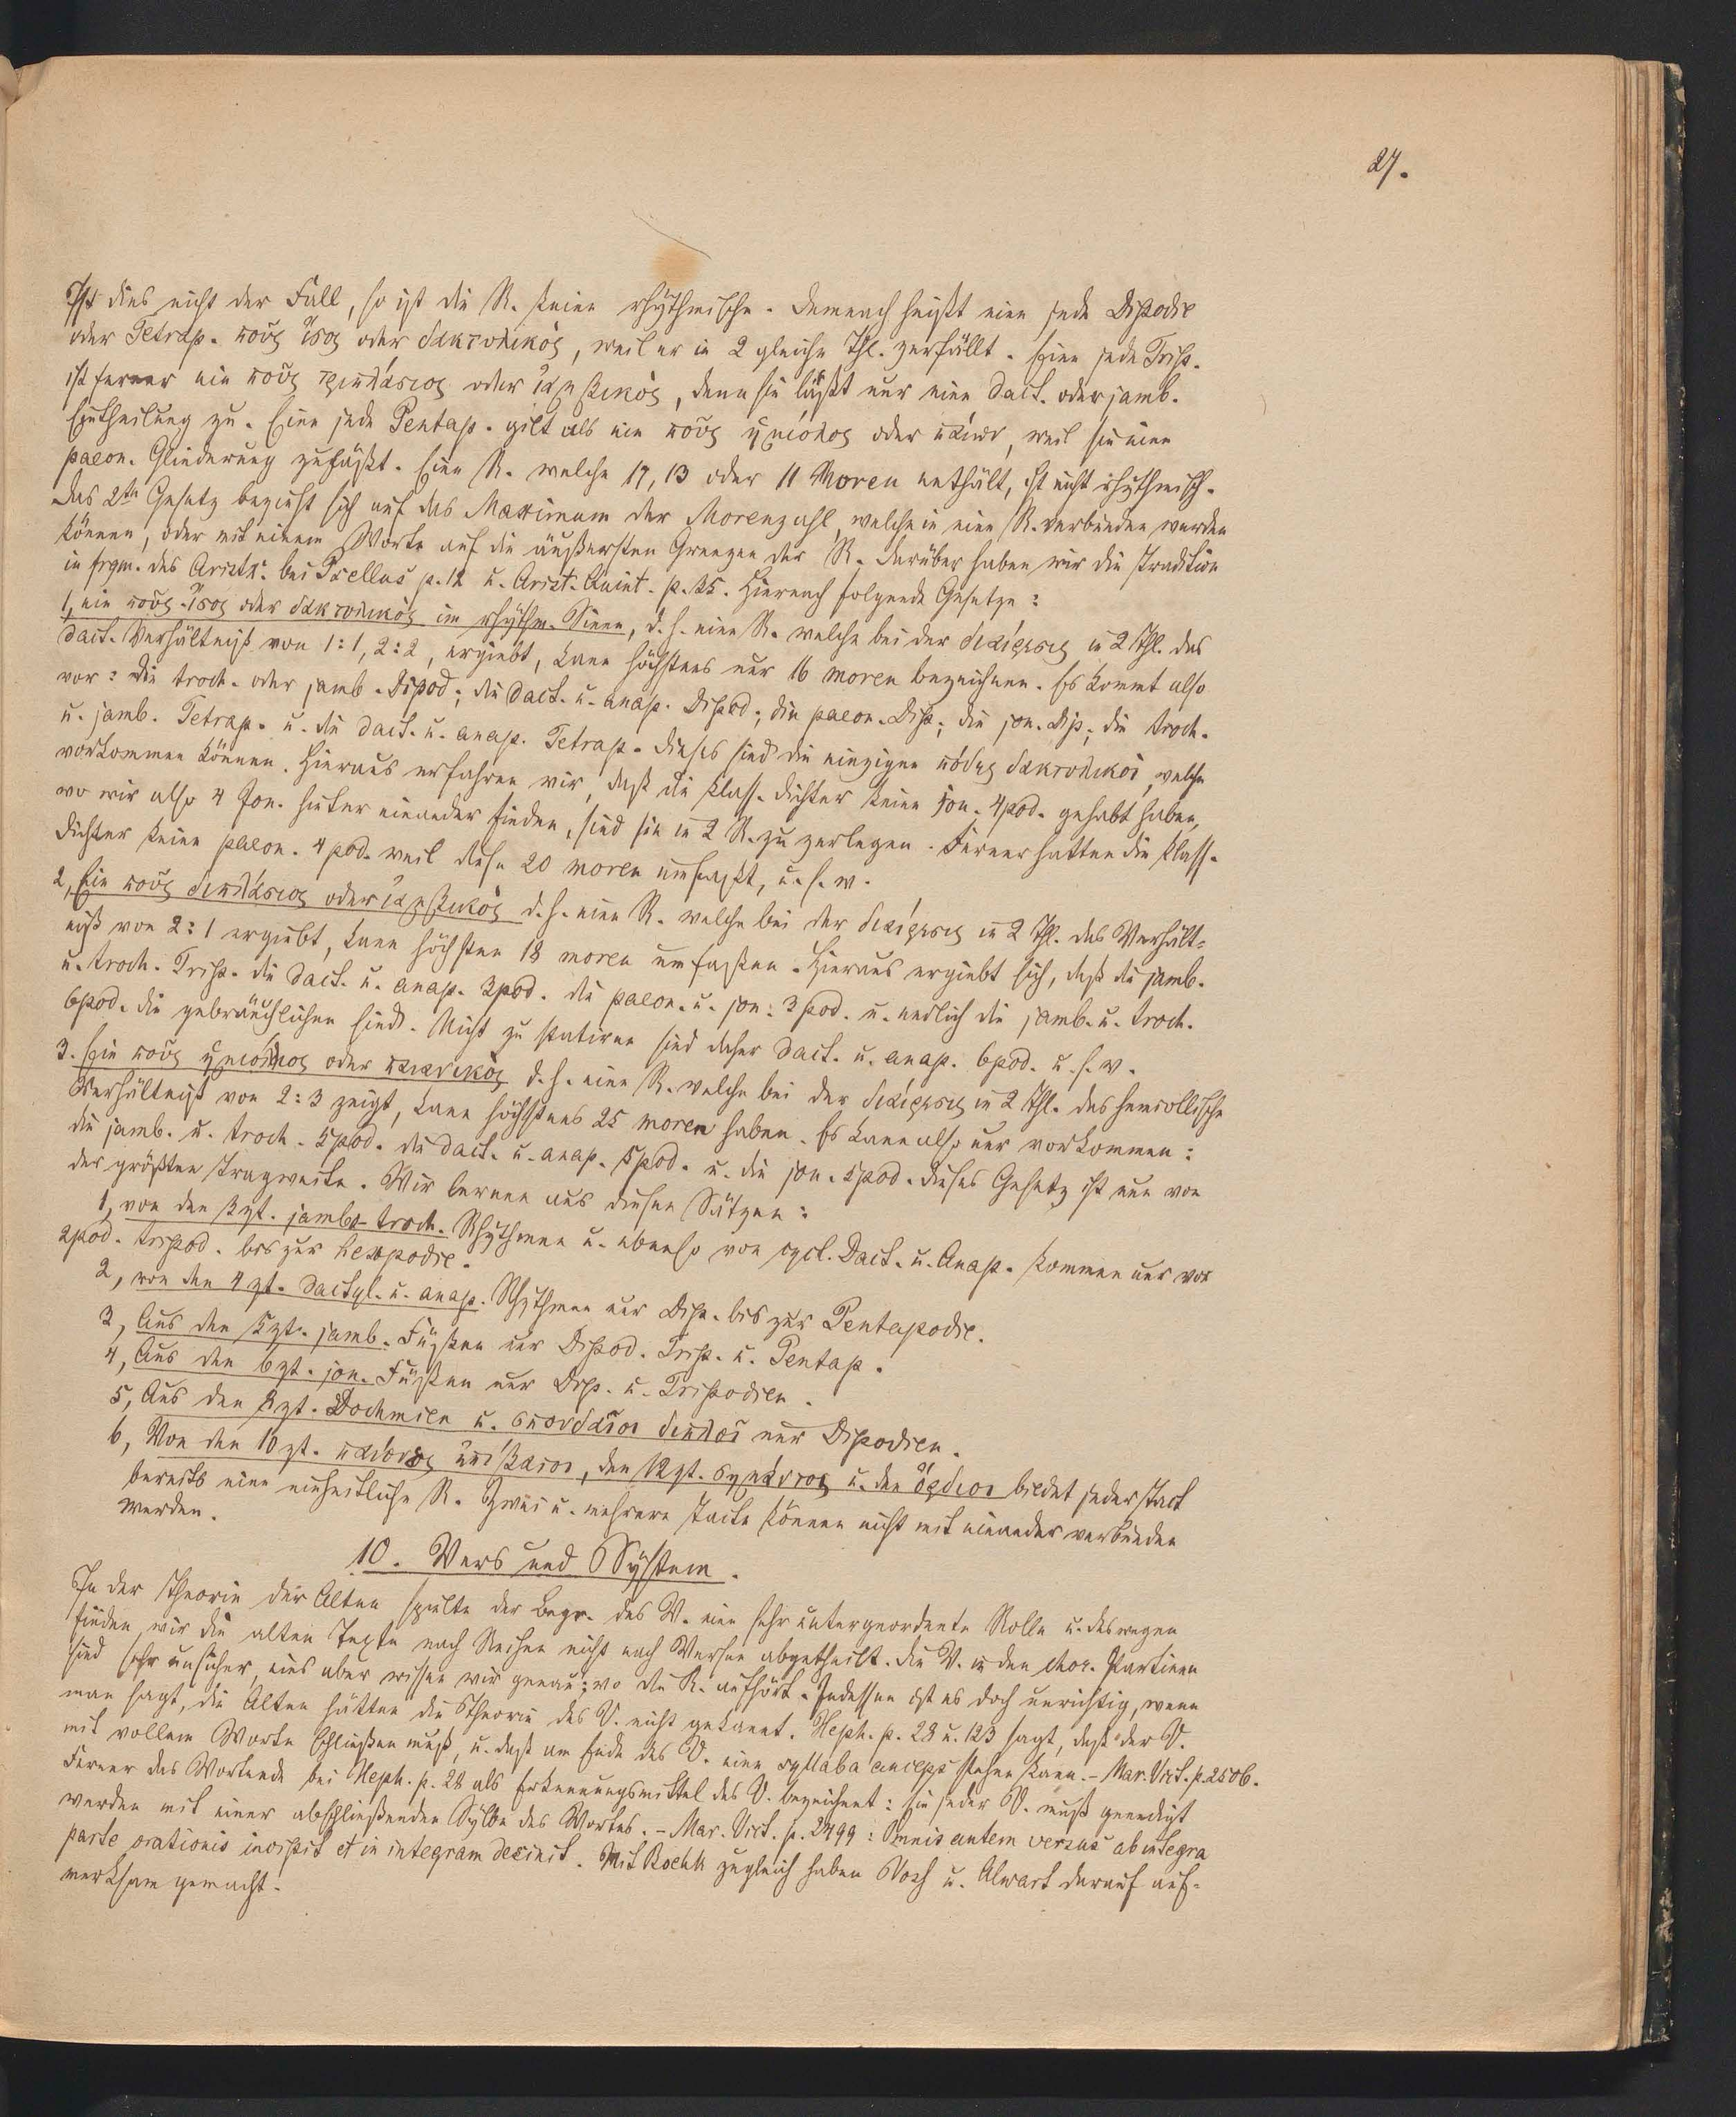 27.
Ist dies nicht der Fall, so ist die R. keine rhythmische. Demnach heißt eine jede Dipodie
oder Tetrap. ποῦς ἴσος oder δακτυλικὸς, weil er in 2 gleiche Thl. zerfällt. Eine jede Trip.
ist ferner ein ποῦς τριπλάσιος oder ἰαμβικὸς, denn sie läßt nur eine dact. oder jamb.
Eintheilung zu. Eine jede Pentap. gilt als ein ποῦς ἡμιόλιος oder παίων, weil sie eine
paeon. Gliederung zuläßt. Eine R. welche 17, 13 oder 11 Moren enthält, ist nicht rhythmisch.
Das 2te Gesetz bezieht sich auf das Maximum der Morenzahl, welche in eine R. verbunden werden
können, oder mit einem Worte auf die äußersten Grenzen der R. Darüber haben wir die Tradition
in frgm. des Aristx. bei Psellus p. 12 u. Arist. Quint. p. 35. Hiernach folgende Gesetze:
1, ein ποῦς ἴσος oder δακτυλικὸς im rhythm. Sinne, d. h. eine R. welche bei der διαίρεσις in 2 Thl. das
dact. Verhältniß von 1:1, 2:2, ergiebt, kann höchstens nur 16 moren bezeichnen. Es kommt also
vor: die troch. oder jamb. Dipod; die dact. u. anap. Dipod; die paeon. Dip; die jon. Dip; die troch.
u. jamb. Tetrap. u. die dact. u. anap. Tetrap. Dieses sind die einzigen πόδες δακτυλικοὶ, welche
vorkommen können. Hieraus erfahren wir, daß die klass. Dichter keine jon. 4pod. gehabt haben,
wo wir also 4 Jon. hinter einander finden, sind sie in 2 R. zu zerlegen. Ferner hatten die klass.
Dichter keine paeon. 4pod. weil diese 20 moren umfaßt, u. s. w.
2, Ein ποῦς διπλάσιος oder ἰαμβικὸς d. h. eine R. welche bei der διαίρεσις in 2 Thl. das Verhält=
niß von 2:1 ergiebt, kann höchsten 18 moren umfaßen. Hieraus ergiebt sich, daß die jamb.
u. troch. Trip. die dact. u. anap. 3pod. die paeon. u. jon: 3pod. u. endlich die jamb. u. troch.
6pod. die gebräuchlichen sind. Nicht zu statiren sind daher dact. u. anap. 6pod. u. s. w.
3. Ein ποῦς ἡμιόλιος oder παιωνικὸς d. h. eine R. welche bei der διαίρεσις in 2 Thl. das hemiollische
Verhältniß von 2:3 zeigt, kann höchstens 25 moren haben. Es kann also nur vorkommen:
die jamb. u. troch. 5pod. die dact. u. anap. 5pod. u. die jon. 5pod. Dieses Gesetz ist nun von
der größten Tragweite. Wir lernen aus diesen Sätzen:
1, von den 3zt. jamb. troch. Rhythmen u. ebenso von cycl. Dact. u. Anap. kommen nur vor
2pod. tripod. bis zur hexapodie.
2, von den 4 zt. dactyl. u. anap. Rhythmen nur Dip. bis zur Pentapodie.
3, Aus den 5zt. jamb. Füßen nur Dipod. Trip. u. Pentap.
4, Aus den 6zt. jon. Füßen nur Dip. u. Tripodien.
5, Aus den 8zt. Dochmien u. σπονδεῖοι διπλοῖ nur Dipodien.
6, Von den 10 zt. παίονες ἐπίβατοι, den 12zt. σημάντος u. den ὄρθιοι bildet jeder Tact
bereits eine einheitliche R. Zwei u. mehrere Tacte können nicht mit einander verbunden
werden.
10. Vers und System.
In der Theorie der Alten spielte der Begr. des V. eine sehr untergeordnete Rolle u. deswegen
finden wir die alten Texte nach Reihen nicht nach Versen abgetheilt. Die V. in den chor. Partieen
sind sehr unsicher, eins aber wissen wir genau; wo die R. aufhört. Indessen ist es doch unrichtig, wenn
man sagt, die Alten hätten die Theorie des V. nicht gekannt. Heph. p. 28 u. 123 sagt, daß der V.
mit vollem Worte schließen muß, u. daß am Ende des V. eine syllaba anceps stehen kann. – Mar. Vict. p. 2506.
Ferner das Wortende bei Heph. p. 28 als Erkennungsmittel des V. bezeichnet: Ein jeder V. muß geendigt
werden mit einer abschließenden Sylbe des Wortes. – Mar. Vict. p. 2499: Omnis autem versus ab integra
parte orationis incipit et in integram decinit. Mit Boekh zugleich haben Voss u. Alwart darauf auf=
merksam gemacht.